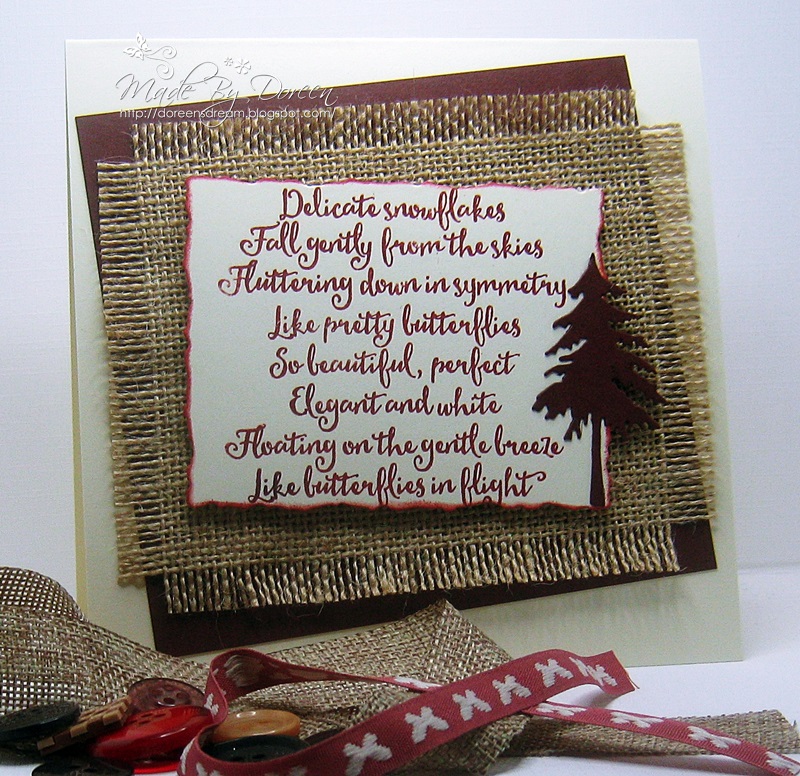 Made By Doreen
http://doreensdream.blogspot.com/
Delicate snowflakes
Fall gently from the skies
Fluttering down in symmetry
Like pretty butterflies
So beautiful, perfect
Elegant and white
Floating on the gentle breeze
Like butterflies in flight